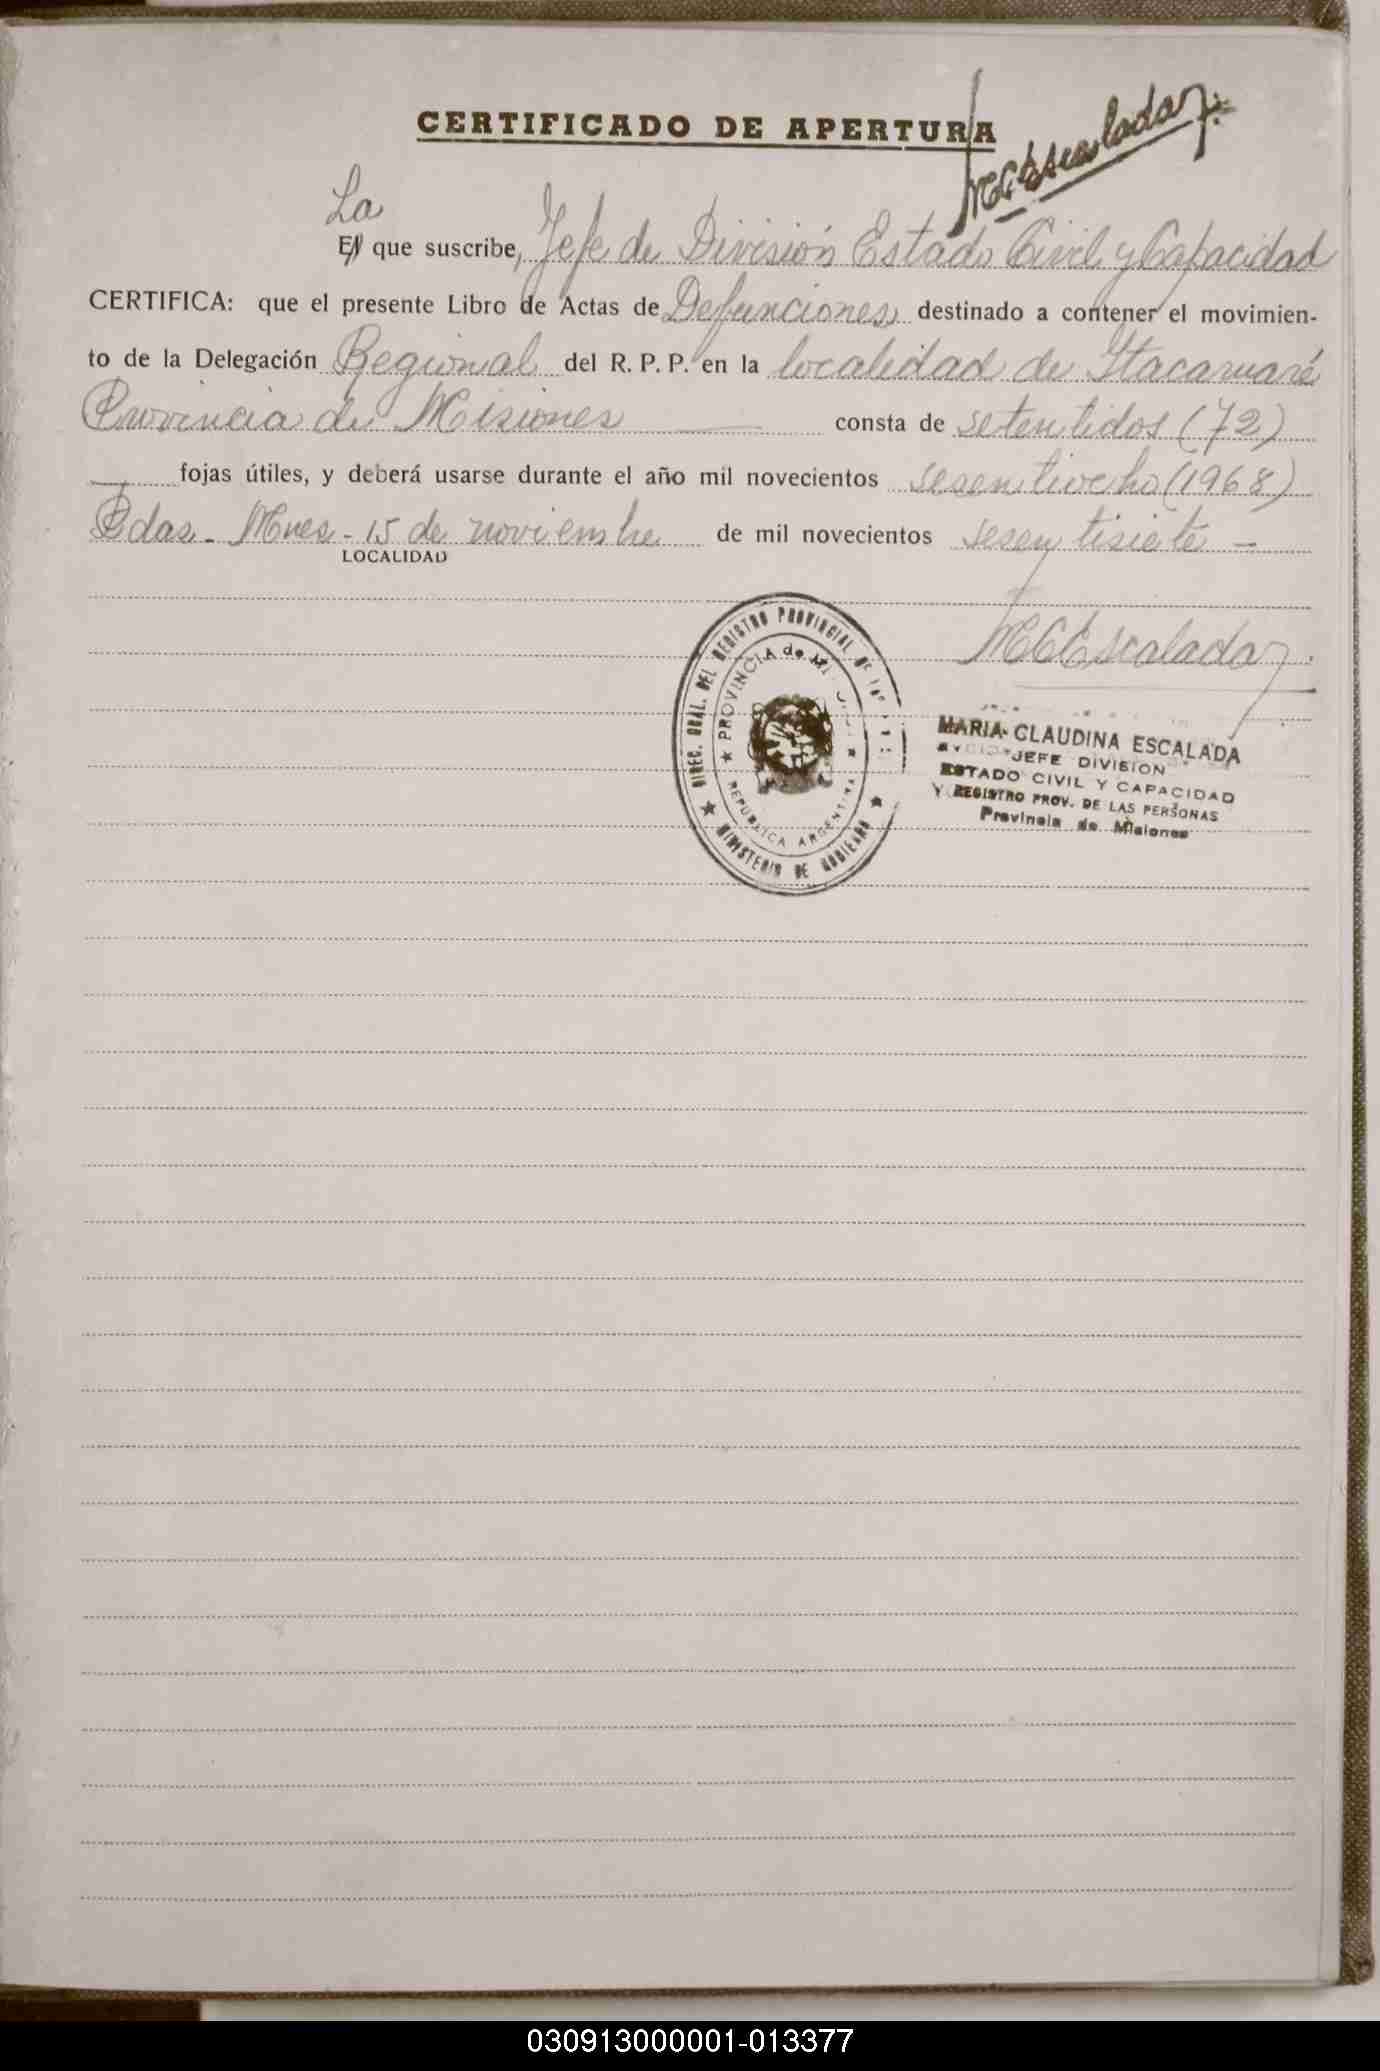 CERTIFICADO DE APERTURA
MCEscalada
La
El que suscribe, Jefe de División Estado Civil y Capacidad
CERTIFICA: que el presente Libro de Actas de Defunciones destinado a contener el movimien-
to de la Delegación Regional del R. P. P. en la localidad de Itacaruaré
Provincia de Misiones consta de setentidos (72)
fojas útiles, y deberá usarse durante el año mil novecientos sesentiocho (1968)
Pdas - Mnes - 15 de noviembre de mil novecientos sesentisiete -
LOCALIDAD
MCEscalada
DIREC. GRAL. DEL REGISTRO PROVINCIAL DE LAS
PROVINCIA de MISIONES
REPUBLICA ARGENTINA
MINISTERIO DE GOBIERNO
MARIA CLAUDINA ESCALADA
JEFE DIVISION
ESTADO CIVIL Y CAPACIDAD
Y REGISTRO PROV. DE LAS PERSONAS
Provincia de Misiones
030913000001-013377